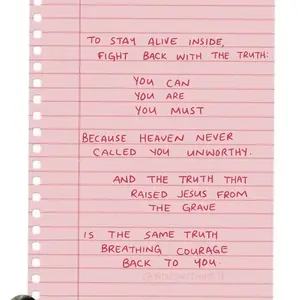 TO STAY ALIVE INSIDE,
FIGHT BACK WITH THE TRUTH:
YOU CAN
YOU ARE
YOU MUST
BECAUSE HEAVEN NEVER
CALLED YOU UNWORTHY.
AND THE TRUTH THAT
RAISED JESUS FROM
THE GRAVE
IS THE SAME TRUTH
BREATHING COURAGE
BACK TO YOU.